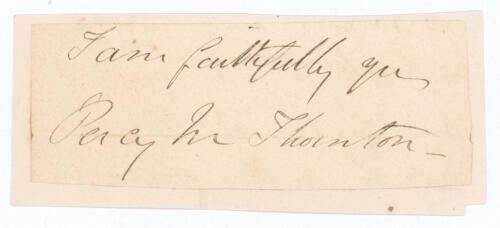 I am faithfully yrs
Percy M Thornton